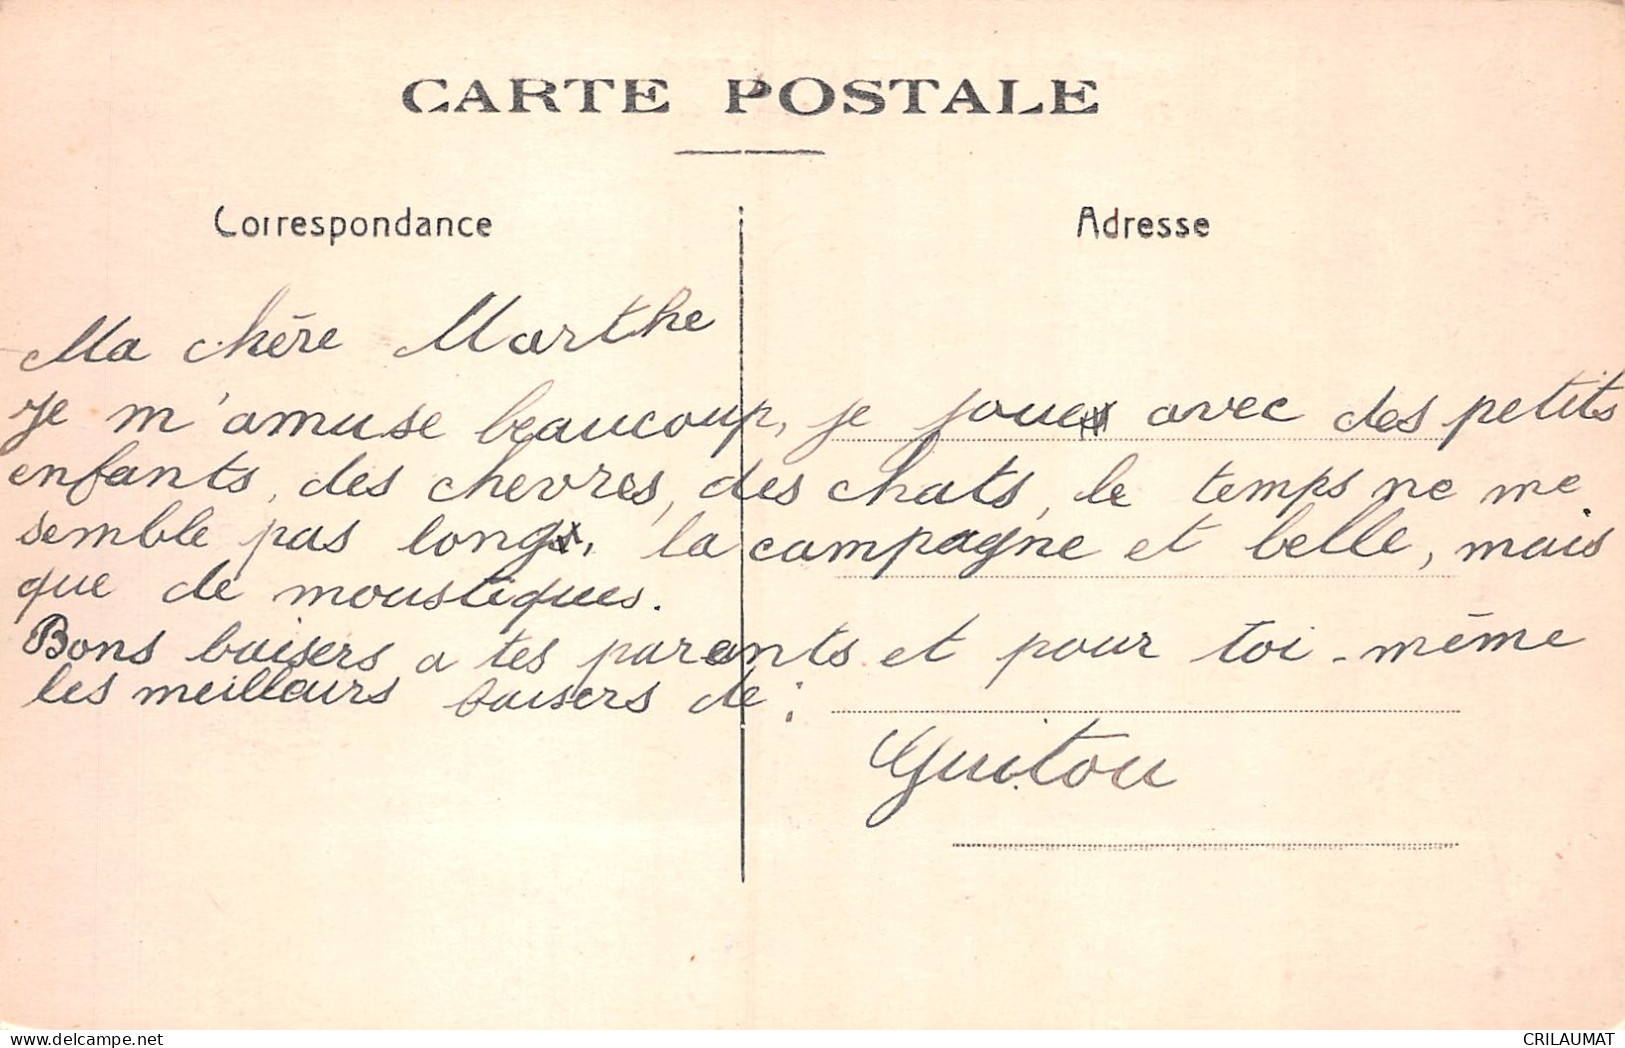 CARTE POSTALE
Correspondance
Adresse
Ma chère Marthe
Je m'amuse beaucoup, je joue avec des petits
enfants, des chevres, des chats, le temps ne me
semble pas long, la campagne et belle, mais
que de moustiques.
Bons baisers a tes parents et pour toi-même
les meilleurs baisers de :
Guitou
delcampe.net
CRILAUMAT